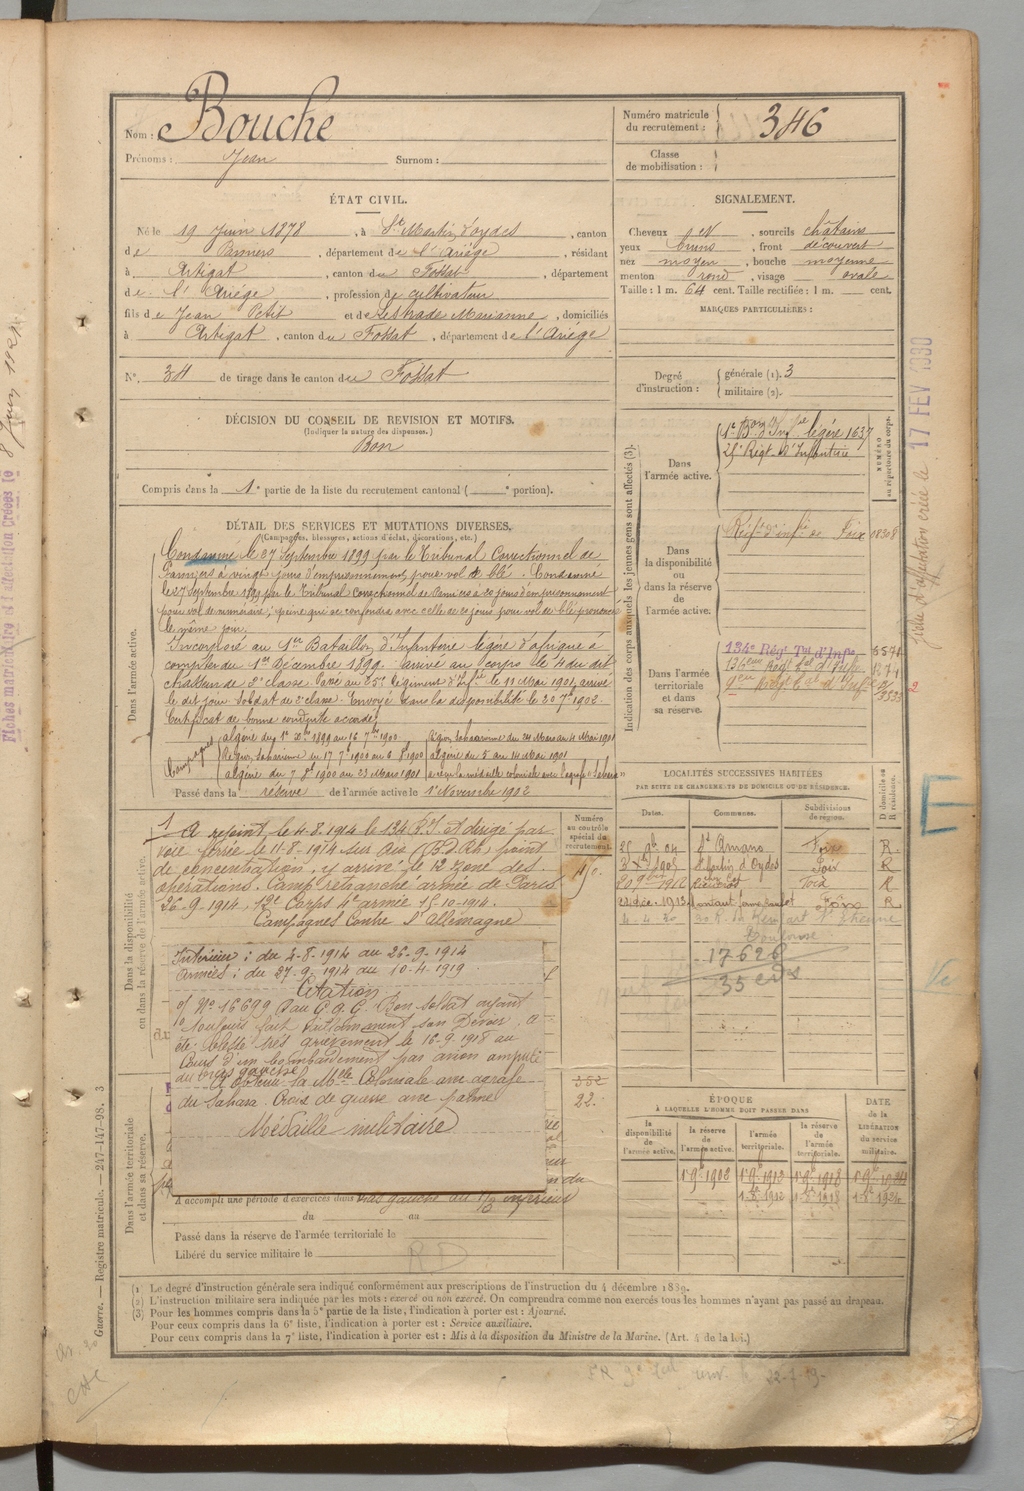 Nom : Bouche
Prénoms : Jean Surnom :
Numéro matricule du recrutement : 346
Classe de mobilisation :
ÉTAT CIVIL.
Né le 19 Juin 1878, à St Martin d'oydes, canton
de Pamiers, département de l'Ariége, résidant
à Artigat, canton du Fossat, département
de l'Ariége, profession de cultivateur
fils de Jean Petit et de Lestrade Marianne, domiciliés
à Artigat, canton du Fossat, département de l'Ariége
N° 34 de tirage dans le canton du Fossat
SIGNALEMENT.
Cheveux , sourcils chatains
yeux bruns, front découvert
nez moyen, bouche moyenne
menton rond, visage ovale
Taille : 1 m. 64 cent. Taille rectifiée : 1 m. cent.
MARQUES PARTICULIÈRES :
Degré d'instruction : générale (1). 3
militaire (2).
DÉCISION DU CONSEIL DE REVISION ET MOTIFS.
(Indiquer la nature des dispenses.)
Bon
Compris dans la 1e partie de la liste du recrutement cantonal ( portion).
DÉTAIL DES SERVICES ET MUTATIONS DIVERSES.
(Campagnes, blessures, actions d'éclat, décorations, etc.)
Dans l'armée active.
Condamné le 27 Septembre 1899 par le Tribunal Correctionnel de
Pamiers à vingt jours d'emprisonnement pour vol de blé. Condamné
le 27 Septembre 1899 par le Tribunal Correctionnel de Pamiers à 20 jours d'emprisonnement
pour vol de numéraire; peine qui se confondra avec celle de 20 jours pour vol de blé prononcé
le même jour.
Incorporé au 1er Bataillon d'Infanterie légère d'afrique à
compter du 1er Décembre 1899. arrivé au corps le 4 du dit
chasseur de 2e classe. Passé au 25e Régiment d'Inf.ie le 11 Mai 1901, arrivé
le dit jour Soldat de 2e classe. Envoyé dans la disponibilité le 20 7bre 1902.
Certificat de bonne conduite accordé.
Campagnes
algérie du 1er Xbre 1899 au 16 7bre 1900
Région Saharienne du 24 Mars au 4 Mai 1901
Région Saharienne du 17 7bre 1900 au 6 8bre 1900
algérie du 5 au 14 Mai 1901
algérie du 7 8bre 1900 au 23 Mars 1901
a reçu la médaille coloniale avec agrafe "Sahara"
Passé dans la réserve de l'armée active le 1er Novembre 1902
Dans la disponibilité ou dans la réserve de l'armée active.
A rejoint le 4-8-1914 le 134 R.T. et dirigé par
voie ferrée le 11-8-1914 sur Aix (B.d.Rh) point
de concentration, y arrivé le 12 zone des
opérations. Camp retranché armée de Paris
26-9-1914. 12e Corps 4e armée 15-10-1914.
Campagnes Contre l'allemagne
Intérieur : du 4-8-1914 au 26-9-1914
Armées : du 27-9-1914 au 10-4-1919
Citation
o/ No 16699 D au G.Q.G. Bon soldat ayant
toujours fait son Devoir. a
été blessé très grièvement le 16-9-1918 au
cours d'un bombardement par avion amputé
du bras gauche
A obtenu la Mlle Coloniale avec agrafe
du Sahara. Croix de guerre avec palme
Médaille militaire
Numéro au contrôle spécial du recrutement.
352
22.
Dans l'armée territoriale et dans sa réserve.
A accompli une période d'exercices dans
du au
Passé dans la réserve de l'armée territoriale le
Libéré du service militaire le
RD
Indication des corps auxquels les jeunes gens sont affectés (3).
NUMÉRO au répertoire du corps.
Dans l'armée active.
1er Bon d'Inf.ie légère 1637
25e Régt d'Infanterie
Dans la disponibilité ou dans la réserve de l'armée active.
Régt d'inf.ie de Foix 08308
Dans l'armée territoriale et dans sa réserve.
134e Régt Tal d'Infie 6571
136eme Régt Tal d'Infie 1271
LOCALITÉS SUCCESSIVES HABITÉES
PAR SUITE DE CHANGEMENTS DE DOMICILE OU DE RÉSIDENCE.
Dates. Communes. Subdivisions de région. D domicile ou R résidence.
25 9bre 04 St Amans Foix R.
1905 St Martin d'Oydes Foix R
1912 Foix R
1913 Foix R
4-4-30
Toulouse
17626
ÉPOQUE
À LAQUELLE L'HOMME DOIT PASSER DANS
DATE de la LIBÉRATION du service militaire.
la disponibilité de l'armée active. la réserve de l'armée active. l'armée territoriale. la réserve de l'armée territoriale.
1er 9bre 1902 1er 9bre 1912 1er 9bre 1918
1er Xbre 1912 1er Xbre 1918 1er Xbre 1924
(1) Le degré d'instruction générale sera indiqué conformément aux prescriptions de l'instruction du 4 décembre 1889.
(2) L'instruction militaire sera indiquée par les mots : exercé ou non exercé. On comprendra comme non exercés tous les hommes n'ayant pas passé au drapeau.
(3) Pour les hommes compris dans la 5e partie de la liste, l'indication à porter est : Ajourné.
Pour ceux compris dans la 6e liste, l'indication à porter est : Service auxiliaire.
Pour ceux compris dans la 7e liste, l'indication à porter est : Mis à la disposition du Ministre de la Marine. (Art. 4 de la loi.)
Guerre. — Registre matricule. — 247-147-98. 3
fiche d'affectation créée le 17 FEV 1930
E